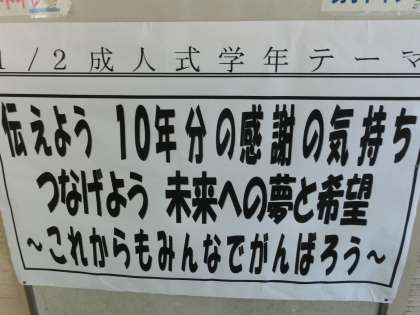 1/2成人式学年テーマ
伝えよう 10年分の感謝の気持ち
つなげよう 未来への夢と希望
～これからもみんなでがんばろう～